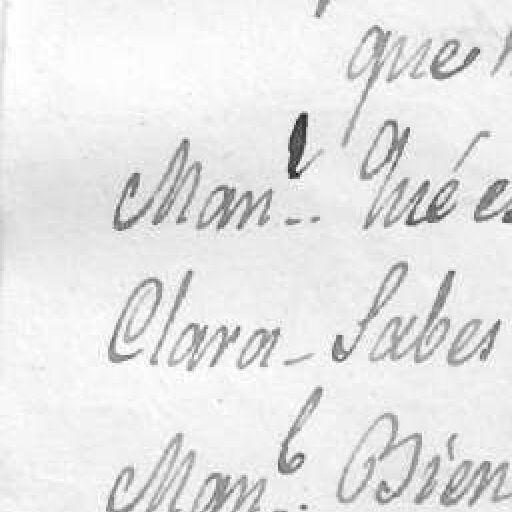 que
Man.l Qué es
Clara - Sabes
Man.l Bien